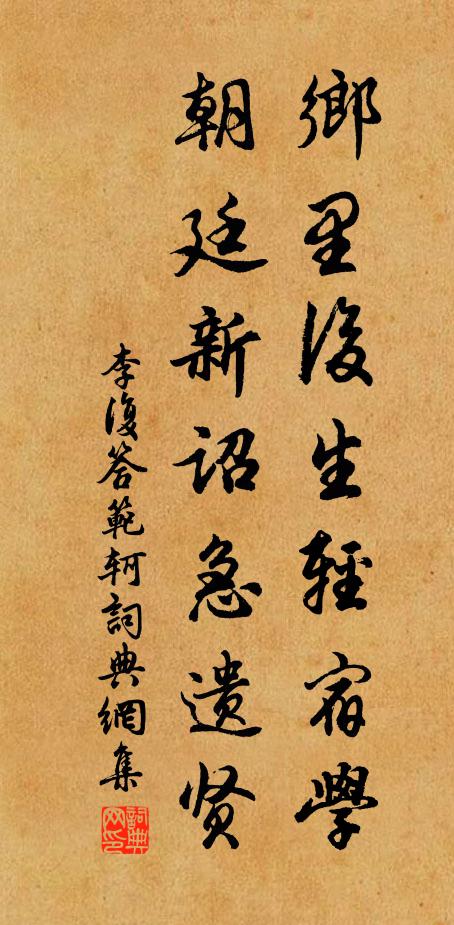 鄉里後生輕宿學
朝廷新詔急遺贤
李復答範軻詞典網集
詞典网印